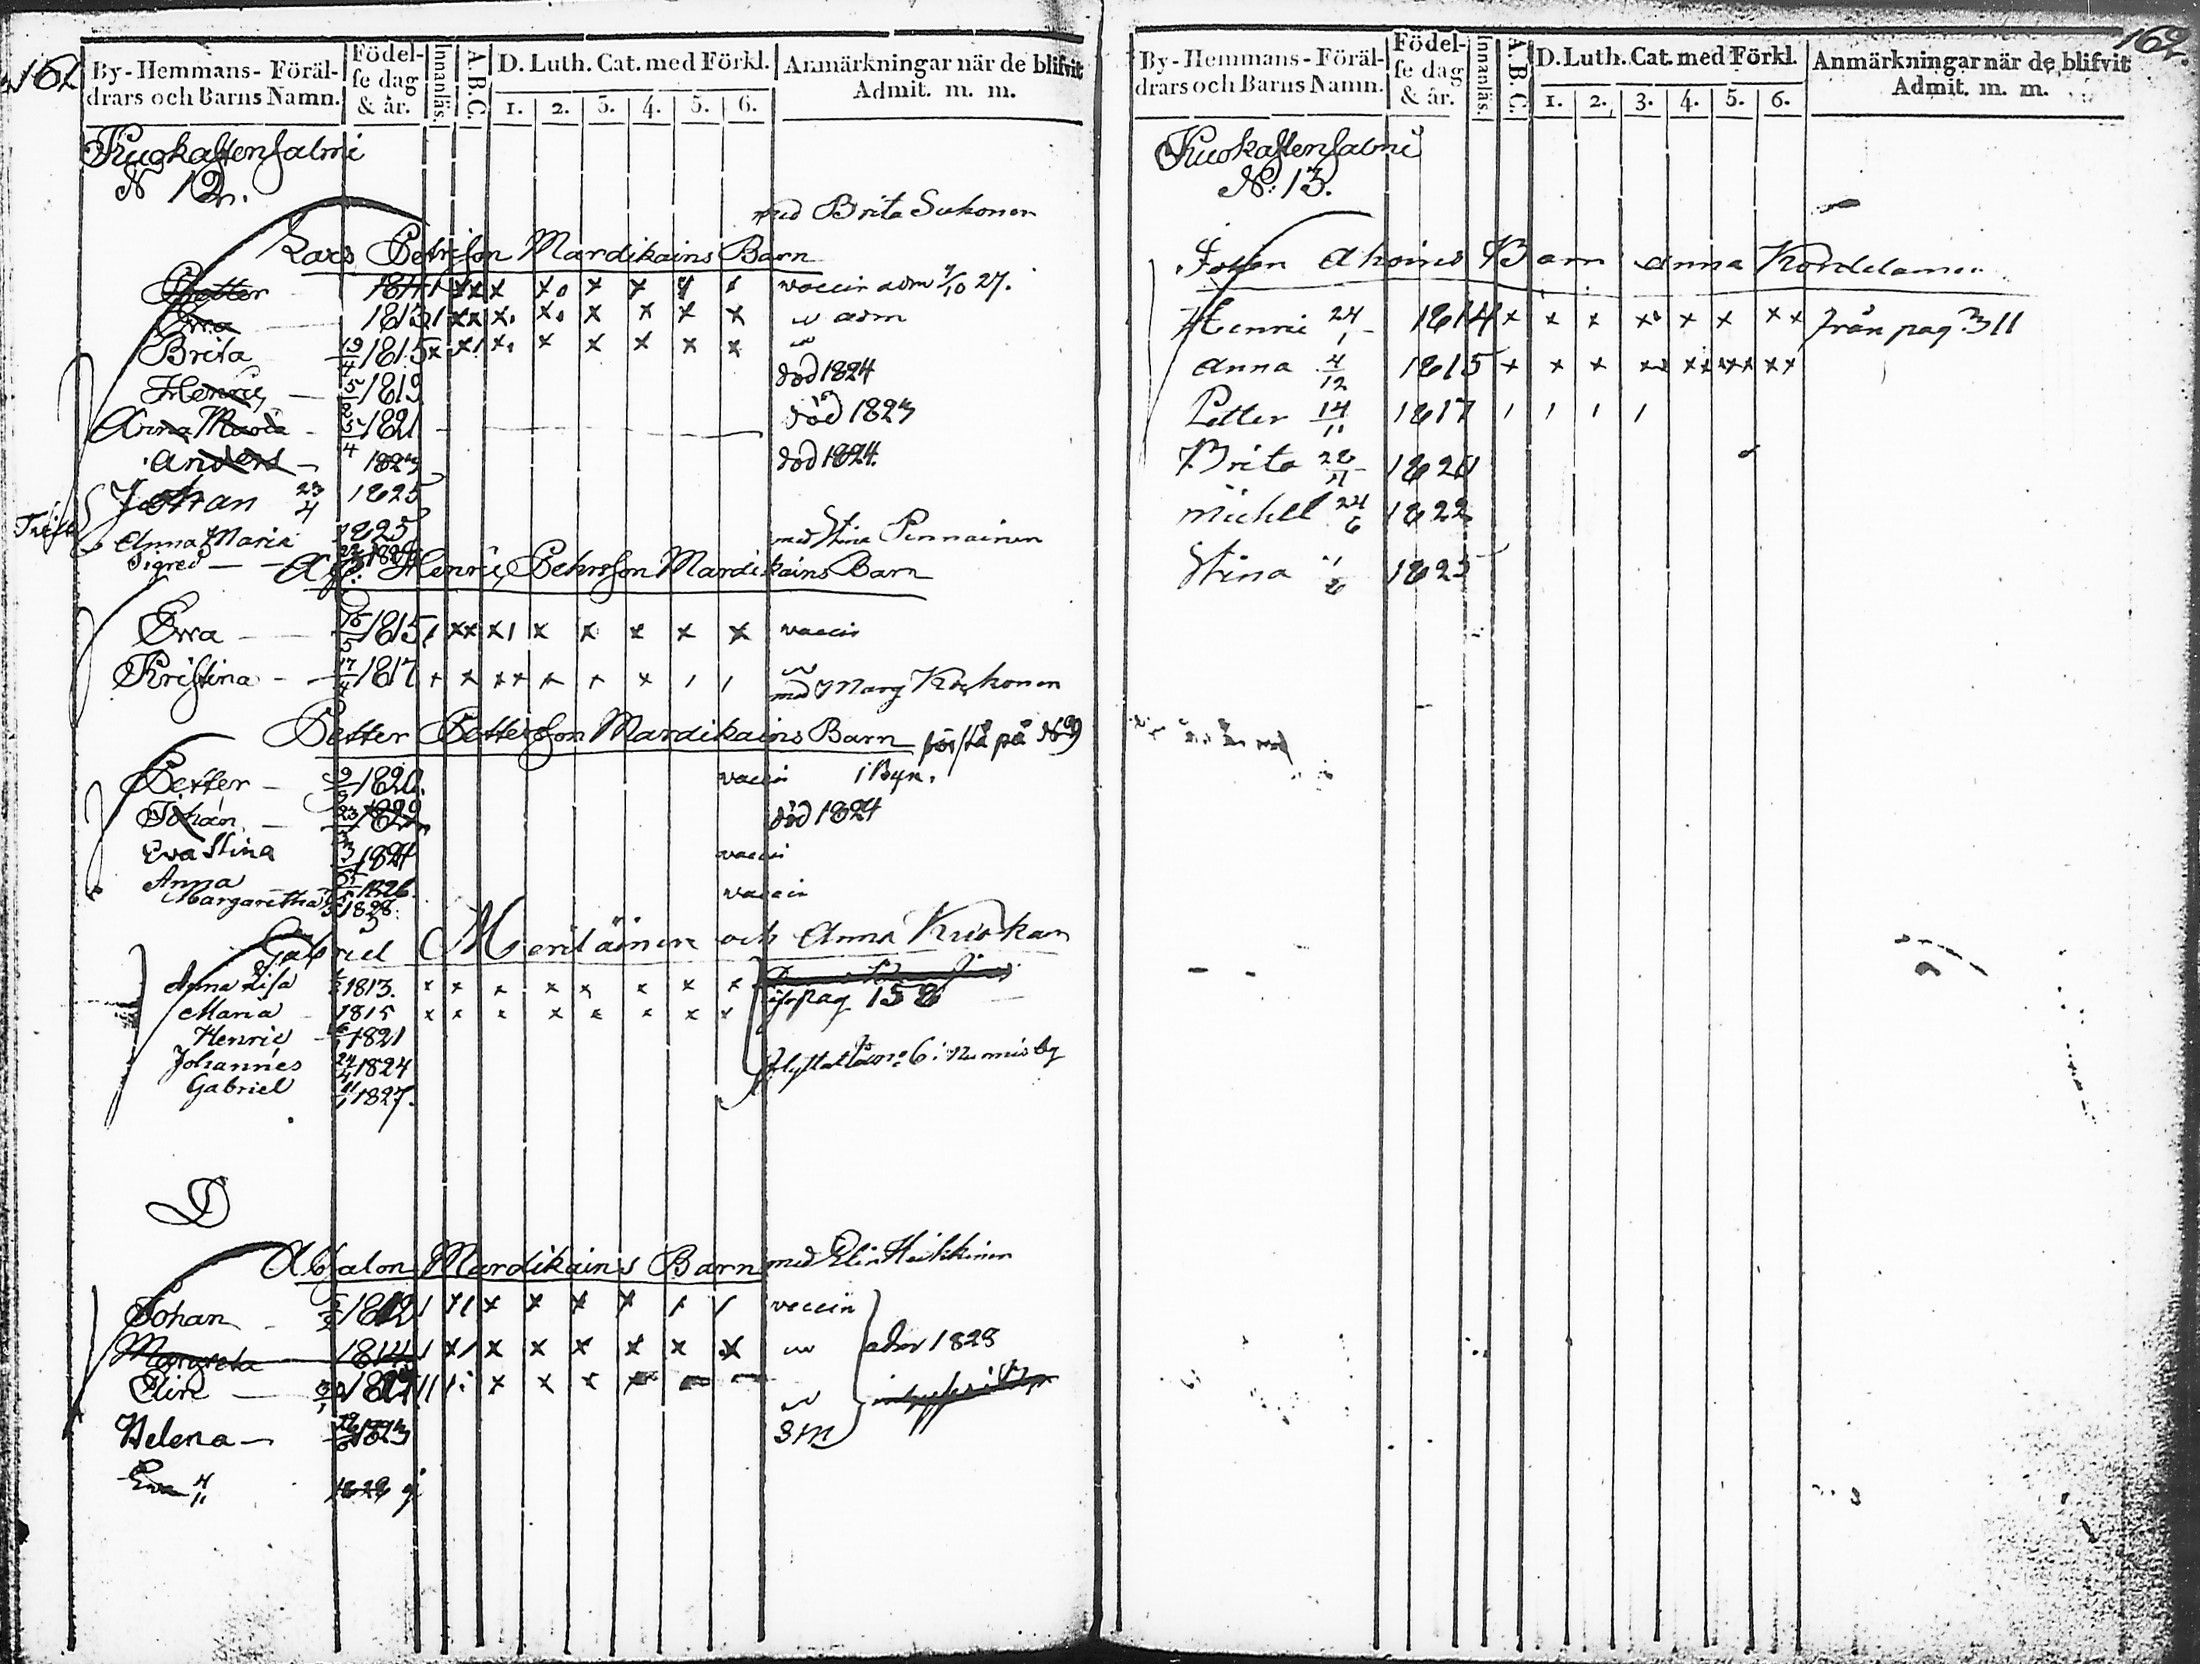 161
By-Hemmans-Föräl-
drars och Barns Namn.
Födel-
se dag
& år.
Innanläs.
A.B.C.
D. Luth. Cat. med Förkl.
1. 2. 3. 4. 5. 6.
Anmärkningar när de blifvit
Admit. m. m.
Kuokastensalmi
N 12.
med Brita Sukonen
Lars Petrsson Mardikains Barn
Petter 1811 vaccin adm 7/10 27.
Ewa 1813 adm
Brita 19/4 1815
Henric 5 1819 död 1824
Anna Maria 1821 död 1823
Anders 1823 död 1824.
Johan 23/4 1825
Anna Maria 1825
Sigred
med Stina Pennainen
Afl: Henric Pehrsson Mardikains Barn
Ewa 1815 vaccin
Kristina 17/4 1817
med Marg Koskonen
Petter Pettersson Mardikains Barn förstå på N 9
i Byn.
Petter 1820. vaccin
Johan 23 1822 död 1824
Eva Stina 1824 vaccin
Anna 1826. vaccin
Margaretha 1828.
Gabriel Meriläinen och Anna Kuokan
Anna Lisa 1813.
pag 158
Maria 1815
Henric 1821
Johannes 24 1824
Gabriel 11/1 1827.
D
Absalon Mardikains Barn med Elin Heikkinen
Johan 1812 vaccin
Margreta 1814 1828
Elin
Helena 1823
Ewa 4/11 1828
162.
By-Hemmans-Föräl-
drars och Barns Namn.
Födel-
se dag
& år.
Innanläs.
A.B.C.
D. Luth. Cat. med Förkl.
1. 2. 3. 4. 5. 6.
Anmärkningar när de blifvit
Admit. m. m.
Kuokastensalmi
N: 13.
Ahoines Barn Anna Kordelainen
Henric 24/1 1814 från pag 311
Anna 4/12 1815
Petter 14/11 1817
Brita 1820
Michel 24/6 1822
Stina 1825